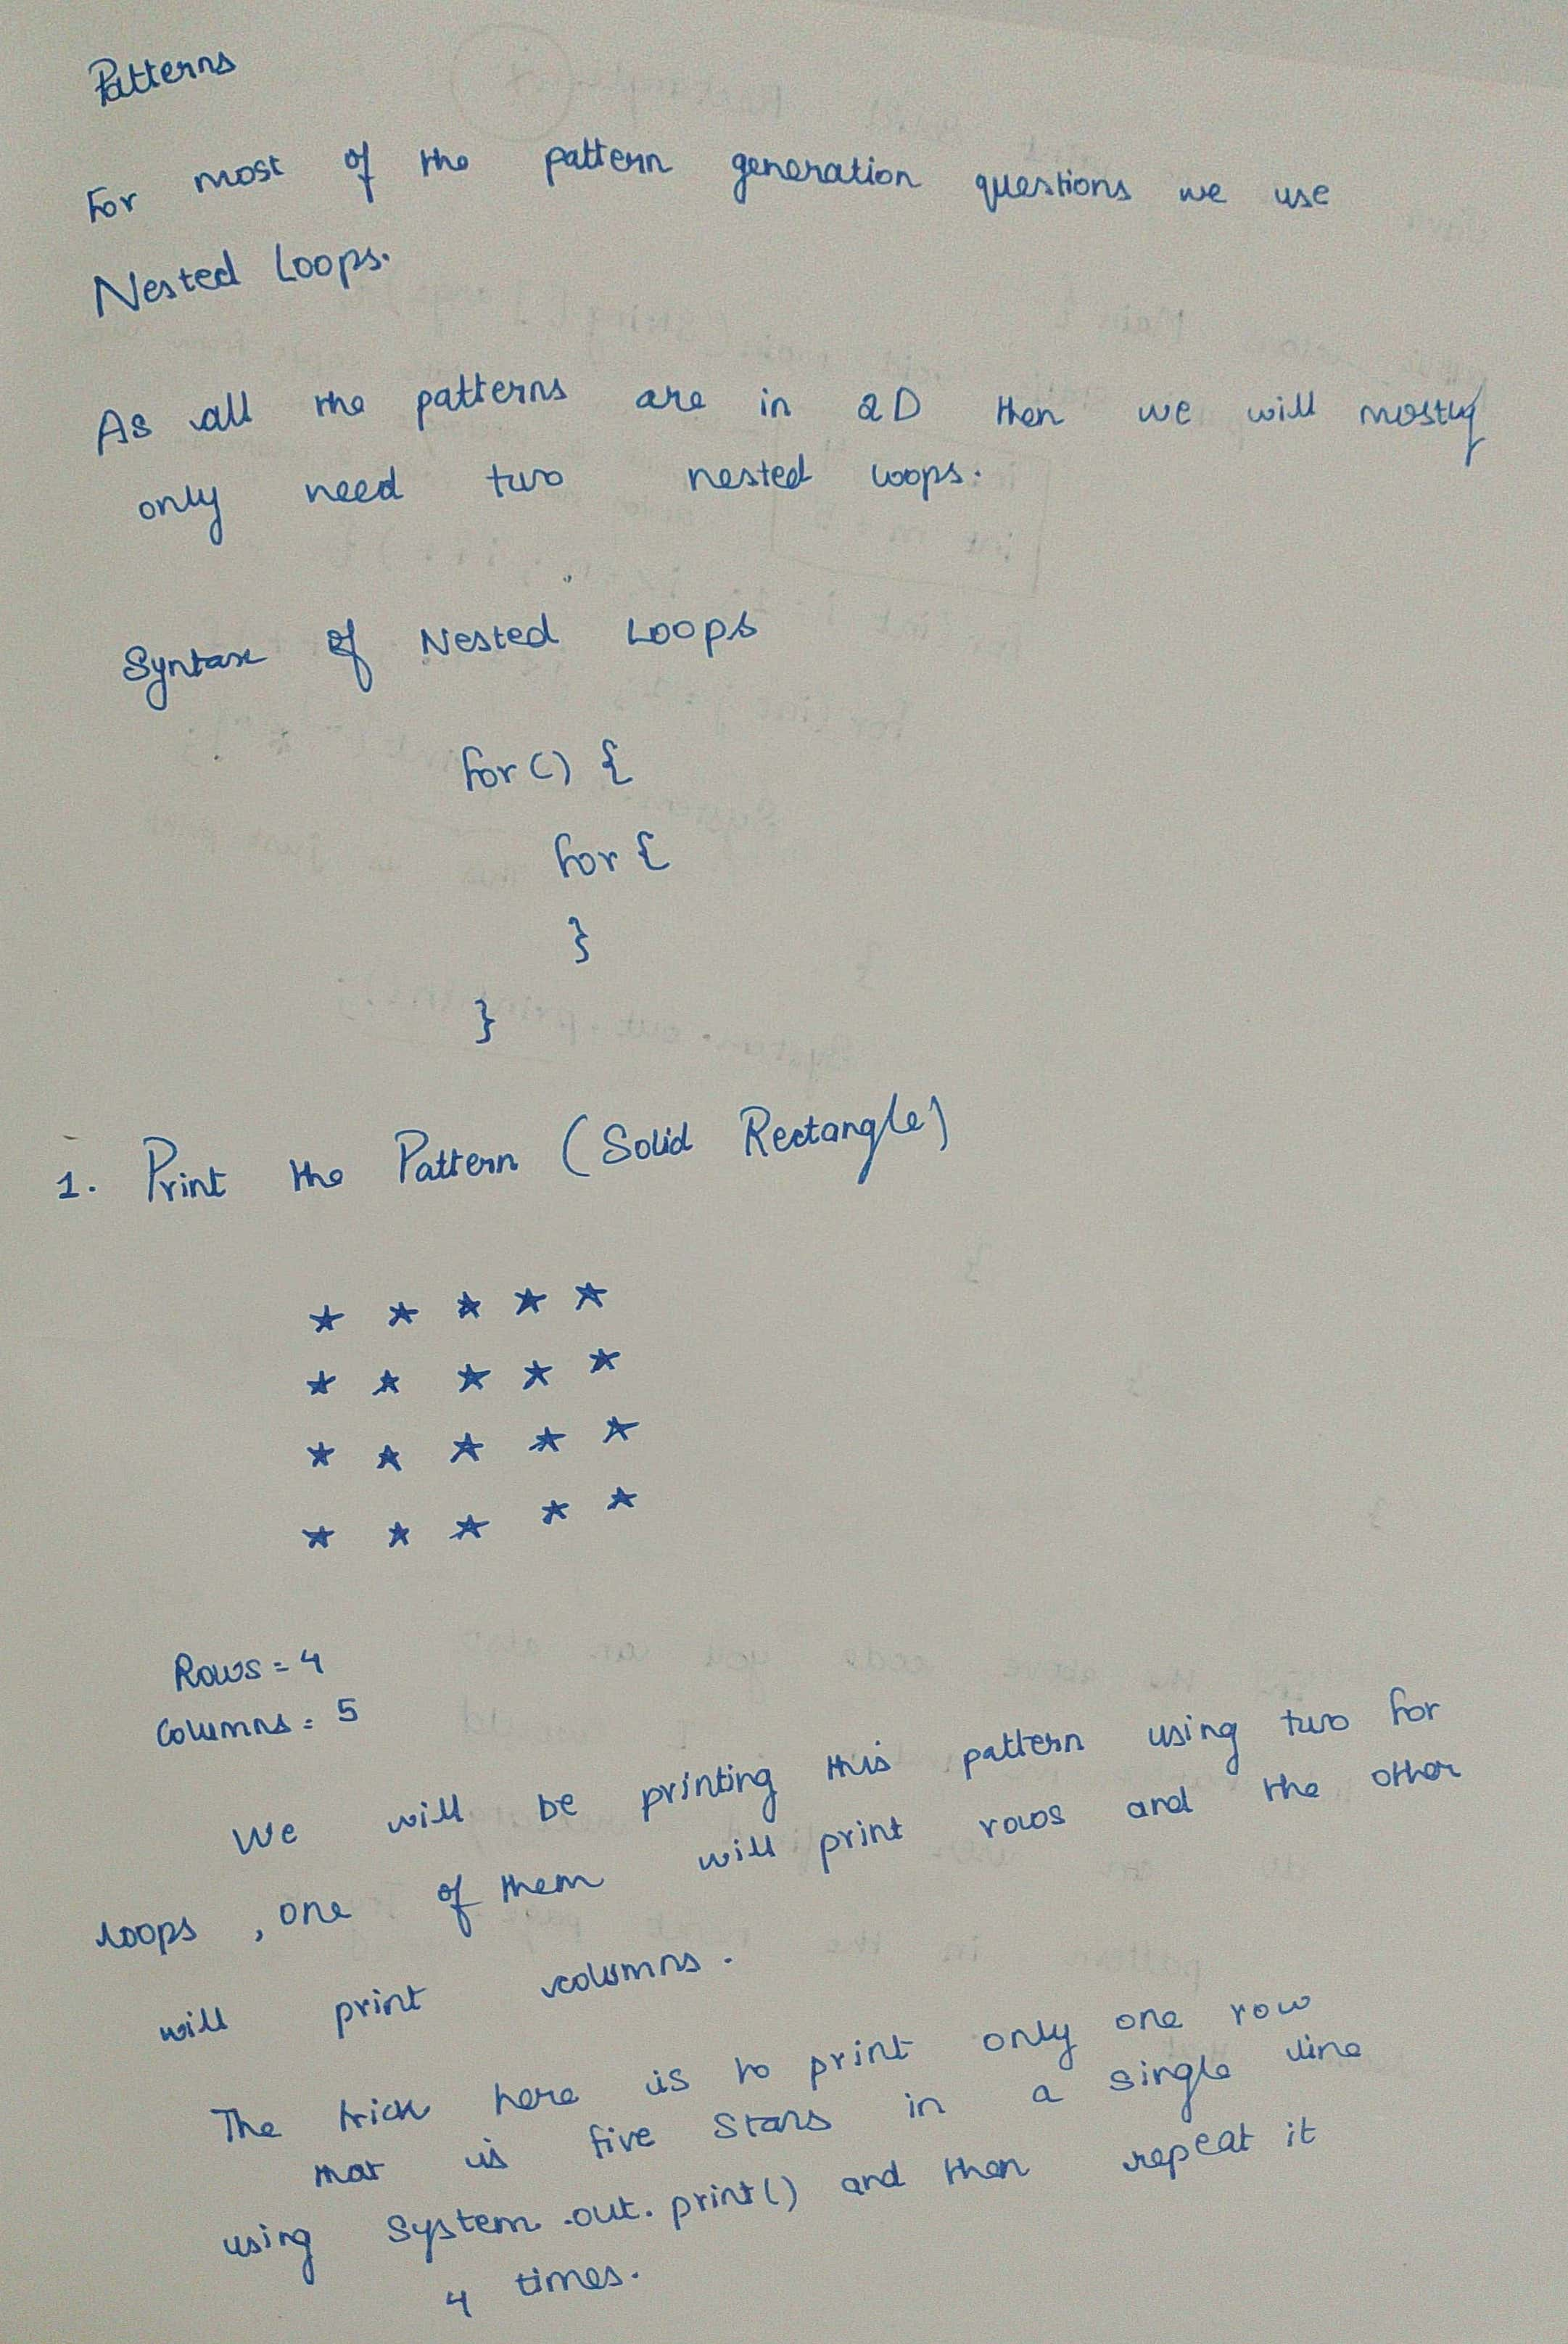 Patterns
For most of the pattern generation questions we use
Nested Loops.
As all the patterns are in 2D then we will mostly
only need two nested loops.
Syntax of Nested Loops
for () {
for {
}
}
1. Print the Pattern (Solid Rectangle)
* * * * *
* * * * *
* * * * *
* * * * *
Rows = 4
Columns = 5
We will be printing this pattern using two for
loops , one of them will print rows and the other
will print columns.
The trick here is to print only one row
that is five stars in a single line
using System.out.print() and then repeat it
4 times.